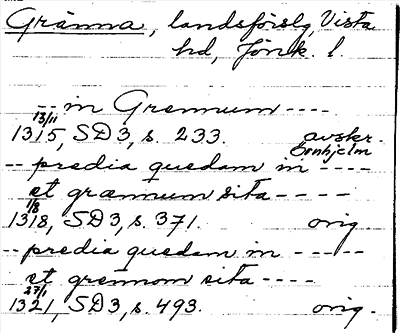 Gränna, landsförslg, Vista
hd, Jönk. l.
-- in Grennum ----
13/11
1315, SD3, s. 233. avskr.
Örnhjelm
-- predia quedam in ----
et grænnum sita -----
1/8
1318, SD3, s. 371. orig.
-- predia quedam in -----
et grennom sita ----
27/1
1321, SD3, s. 493. orig.